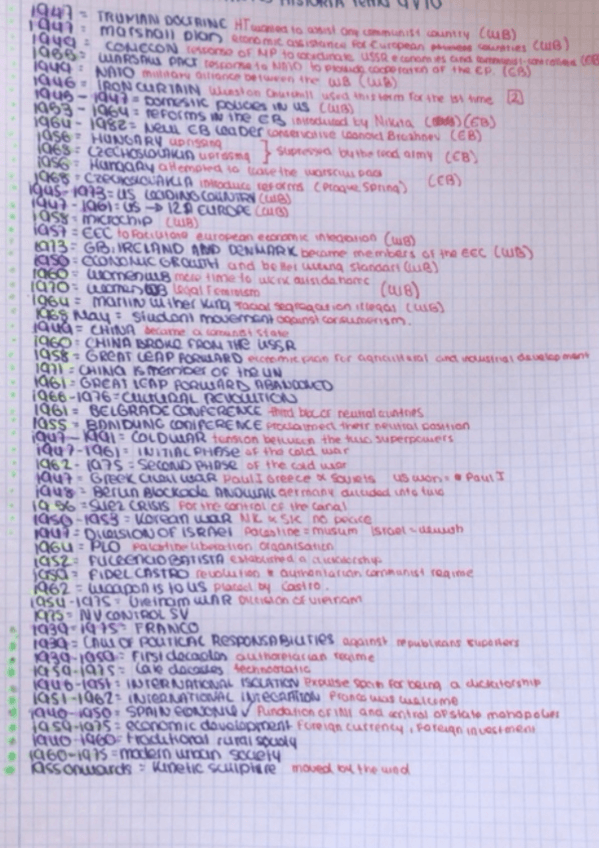 HISTORIA Tema 9 y 10
1947 = TRUMAN DOCTRINE HT wanted to assist any communist country (WB)
1947 = marshall plan economic assistance for European countries (WB)
1949 = COMECON response of MP to coordinate USSR economies and
1955 = WARSAW PACT response to NATO to provide cooperation of the (EB)
1949 = NATO military alliance between the WB (WB)
1946 = IRON CURTAIN Winston Churchill used this term for the 1st time [2]
1945 - 1947 = domestic policies in US (WB)
1953 - 1964 = reforms in the EB introduced by Nikita (EB)
1964 - 1982 = New EB leader conservative Leonid Breshnev (EB)
1956 = HUNGARY uprising
1968 = CZECHOSLOVAKIA uprising } supressed by the read army (EB)
1956 = Hungary attempted to leave the warsaw pact
1968 = CZECHOSLOVAKIA introduce reforms (Prague Spring) (EB)
1945-1973 = US LEADING COUNTRY (WB)
1947 - 1961 = US → 12$ EUROPE (WB)
1958 = microchip (WB)
1957 = EEC to facilitate european economic integration (WB)
1973 = GB, IRELAND AND DENMARK became members of the EEC (WB)
1950 = ECONOMIC GROWTH and better living standart (WB)
1960 = women WB more time to work outside home
1970 = women WB legal feminism (WB)
1964 = martin luther king racial segregation illegal (WB)
1968 May = student movement against consumerism.
1949 = CHINA became a comunist state
1960 = CHINA BROKE FROM THE USSR
1958 = GREAT LEAP FORWARD economic plan for agricultural and industrial development
1971 = CHINA is member of the UN
1961 = GREAT LEAP FORWARD ABANDONED
1966-1976 = CULTURAL REVOLUTION
1961 = BELGRADE CONFERENCE third bloc or neutral countries
1955 = BANDUNG CONFERENCE proclaimed their neutral position
1947 - 1991 = COLD WAR tension between the two superpowers
1947-1961 = INITIAL PHASE of the cold war
1962 - 1975 = SECOND PHASE of the cold war
1947 = Greek civil war Paul I Greece x Soviets US won = Paul I
1948 = Berlin Blockade AND WALL germany divided into two
1956 = SUEZ CRISIS for the control of the canal
1950 - 1953 = Korean war NK x SK no peace
1947 = DIVISION OF ISRAEL Palestine = muslim Israel = dewish
1964 = PLO Palestine liberation organisation
1952 = FULGENCIO BATISTA established a dictatorship
1959 = FIDEL CASTRO revolution authoritarian communist regime
1962 = weapons to US placed by Castro.
1954 - 1975 = Vietnam WAR Division of vietnam
1975 = NV CONTROL SV
1939 - 1975 = FRANCO
1939 = LAW OF POLITICAL RESPONSABILITIES against republicans suporters
1939 - 1959 = First decades authoritarian regime
1959 - 1975 = Late decades technocratic
1946 - 1951 = INTERNATIONAL ISOLATION Expulse Spain for being a dictatorship
1951 - 1962 = INTERNATIONAL INTEGRATION Franco was welcome
1940 - 1950 = SPAIN ECONOMIC ✓ Fundation of INI and control of state monopolies
1959-1975 = economic development foreign currency, foreign investment
1940 - 1960 = traditional rural society
1960-1975 = modern urban society
1955 onwards = kinetic sculpture moved by the wind